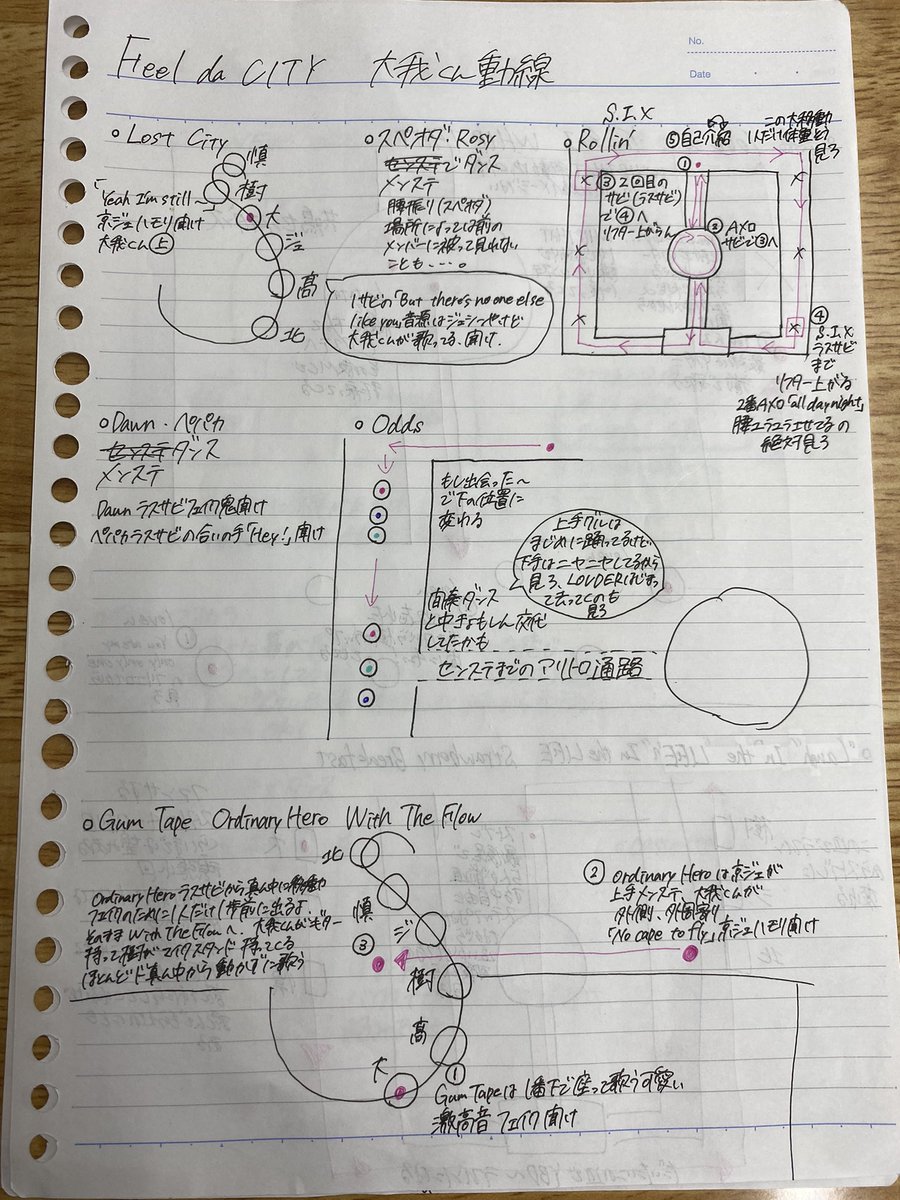 Feel da CITY 大我くん動線
No.
Date
○Lost City
慎
樹
大
ジ
高
北
「Yeah I'm still～
京ジェハモリ聞け
大我くん上
○スペオダ・Rosy
センステでダンス
メンステ
腰振り(スペオダ)
場所によっては前の
メンバーに被って見れない
ことも・・・。
1サビの「But there's no one else
like you」音源はジェシーやけど
大我くんが歌ってる、聞け.
S.I.X
○Rollin'
⑤自己介紹
この大移動
1人だけ
見ろ
①
③2回目の
サビ(ラスサビ)
で④へ
リフター上がらん
②AXO
サビで③へ
④
S.I.X
ラスサビ
まで
リフター上がる
2番AXO「all day night」
腰ユラユラさせてるの
絶対見ろ
○Dawn・ペパカ
センステダンス
メンステ
Dawn ラスサビフェイク鬼聞け
ペパカラスサビの合いの手「Hey!」聞け
○Odds
もし出会った～
で下の位置に
変わる
上手グルは
まじめに踊ってるけど
下手はニヤニヤしてるから
見ろ、LOUDERはじまっ
て去ってくのも
見ろ
間奏ダンス
と中きょもしん交代
してたかも
センステまでのアリトロ通路
○Gum Tape Ordinary Hero With The Flow
北
慎
ジ
樹
高
大
Ordinary Hero ラスサビから真ん中に移動
フェイクのために1人だけ1歩前に出るよ
そのまま With The Flow へ、大我くんがギター
持って樹がマイクスタンド持ってくる
ほとんどド真ん中から動かずに歌う
③
②Ordinary Heroは京ジェが
上手メンステ、大我くんが
外側、外周寄り
「No cape to fly」京ジェハモリ聞け
①
Gum Tapeは1番下で座って歌う可愛い
激高音フェイク聞け